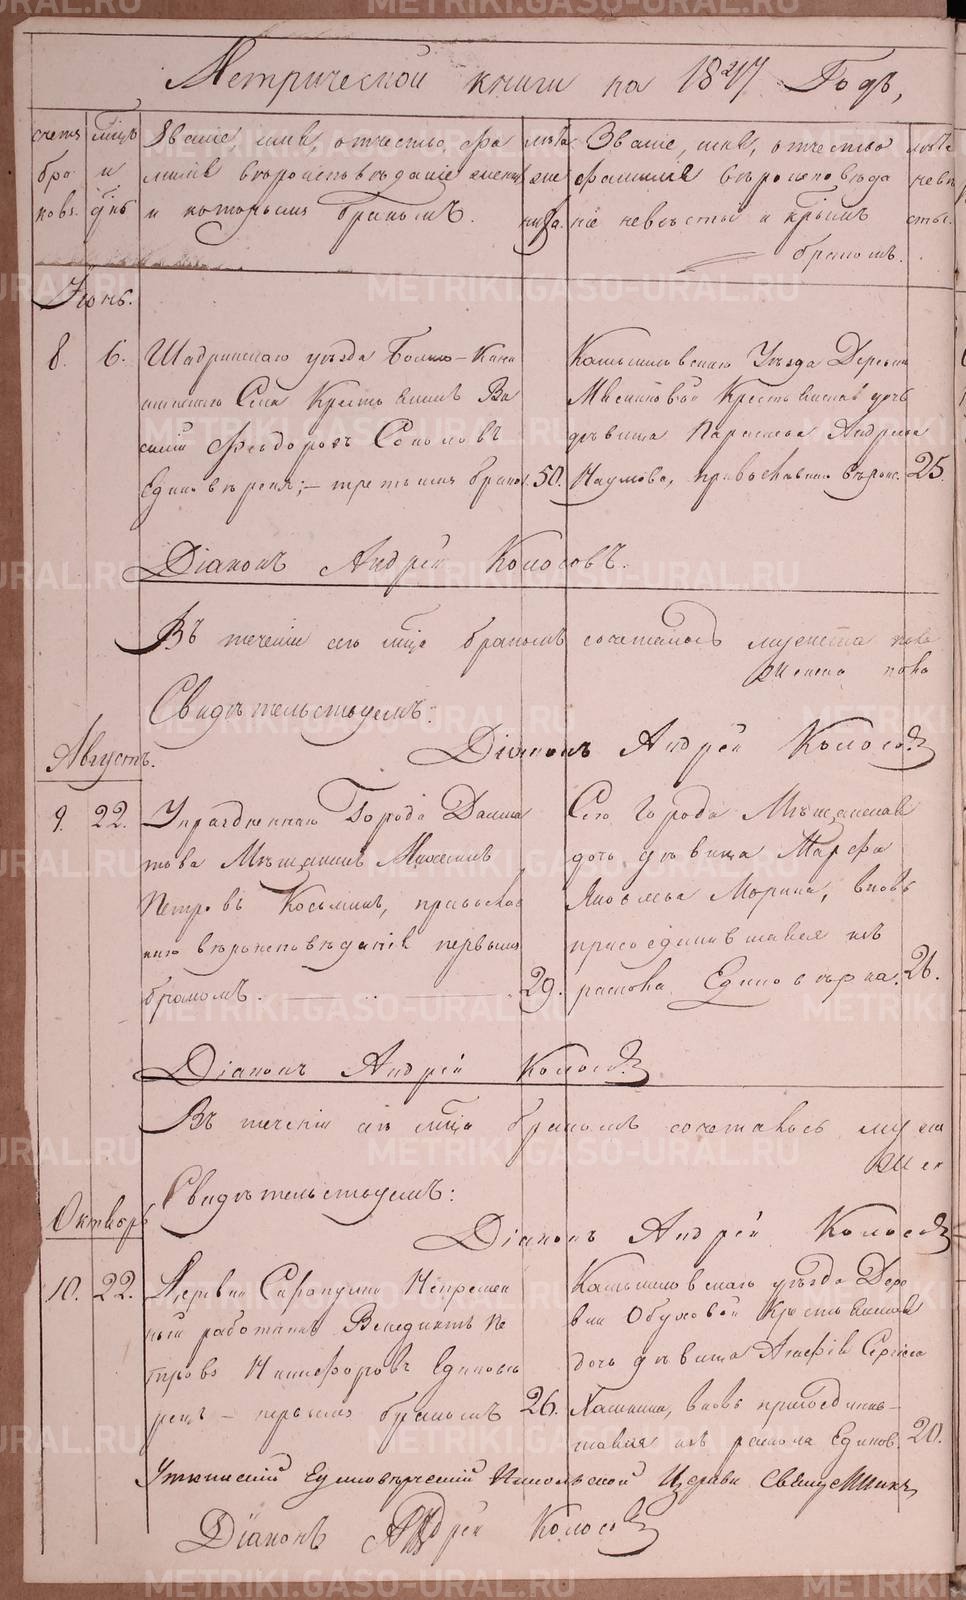 Метрической книги на 1847 Годъ,
счетъ браковъ.
мѣцъ и днь
Званіе, имя, отчество, фамилія вѣроисповѣданіе жениха и которымъ бракомъ.
лѣта жениха.
Званіе, имя, отчество фамилія вѣроисповѣданіе невѣсты и крымъ бракомъ.
лѣта невѣсты.
Іюнь.
8. 6.
Шадринскаго уѣзда
Села Крестьянинъ Василій Ѳеодоровъ Соколовъ
Единовѣрецъ; – третьимъ бракомъ 50.
Камышловскаго Уѣзда Деревни
Крестьянская дочь
дѣвица Параскева Андреева
Наумова, православнаго вѣроис. 25.
Діаконъ Андрей Колосовъ.
Въ теченіи сего мѣца бракомъ сочеталось мужеска пола
женска пола
Свидѣтельствуемъ:
Діаконъ Андрей Колосовъ
Августъ.
9. 22.
Упраздненнаго Города Далма
това Мѣщанинъ
Петровъ Косьминъ, православ
наго вѣроисповѣданія первымъ
бракомъ. 29.
Сего Города Мѣщанская
дочь дѣвица Марѳа
Яковлева Морина, вновь
присоединившаяся изъ
раскола Единовѣрка. 26.
Діаконъ Андрей Колосовъ
Въ теченіи сего мѣца бракомъ сочеталось муж
жен
Свидѣтельствуемъ:
Діаконъ Андрей Колосовъ
Октябрь
10. 22.
Деревни Непремен
ный работникъ Венедиктъ Пе
тровъ Никифоровъ Единовѣ
рецъ – первымъ бракомъ 26.
Камышловскаго уѣзда Дере
вни Обуховой Крестьянская
дочь дѣвица Агафія Сергіева
вновь присоединив-
шаяся изъ раскола Единов. 20.
Уткинскій Единовѣрческій Никольской Церкви Священникъ
Діаконъ Андрей Колосовъ
METRIKI.GASO-URAL.RU